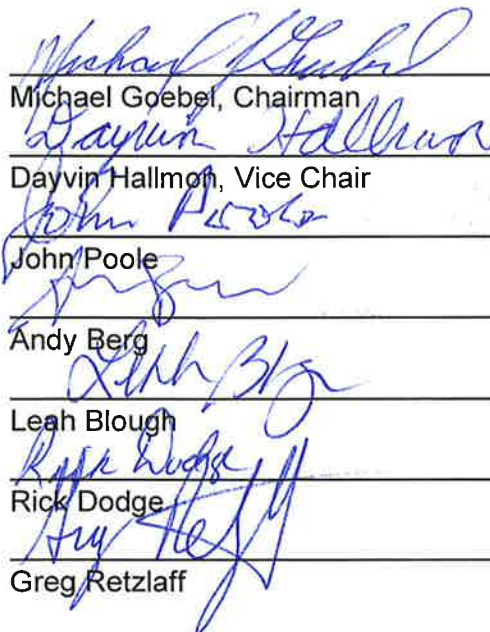 Michael J Goebel
Michael Goebel, Chairman
Dayvin Hallmon
Dayvin Hallmon, Vice Chair
John Poole
John Poole
Andy Berg
Leah Blough
Leah Blough
Rick Dodge
Rick Dodge
Greg Retzlaff
Greg Retzlaff